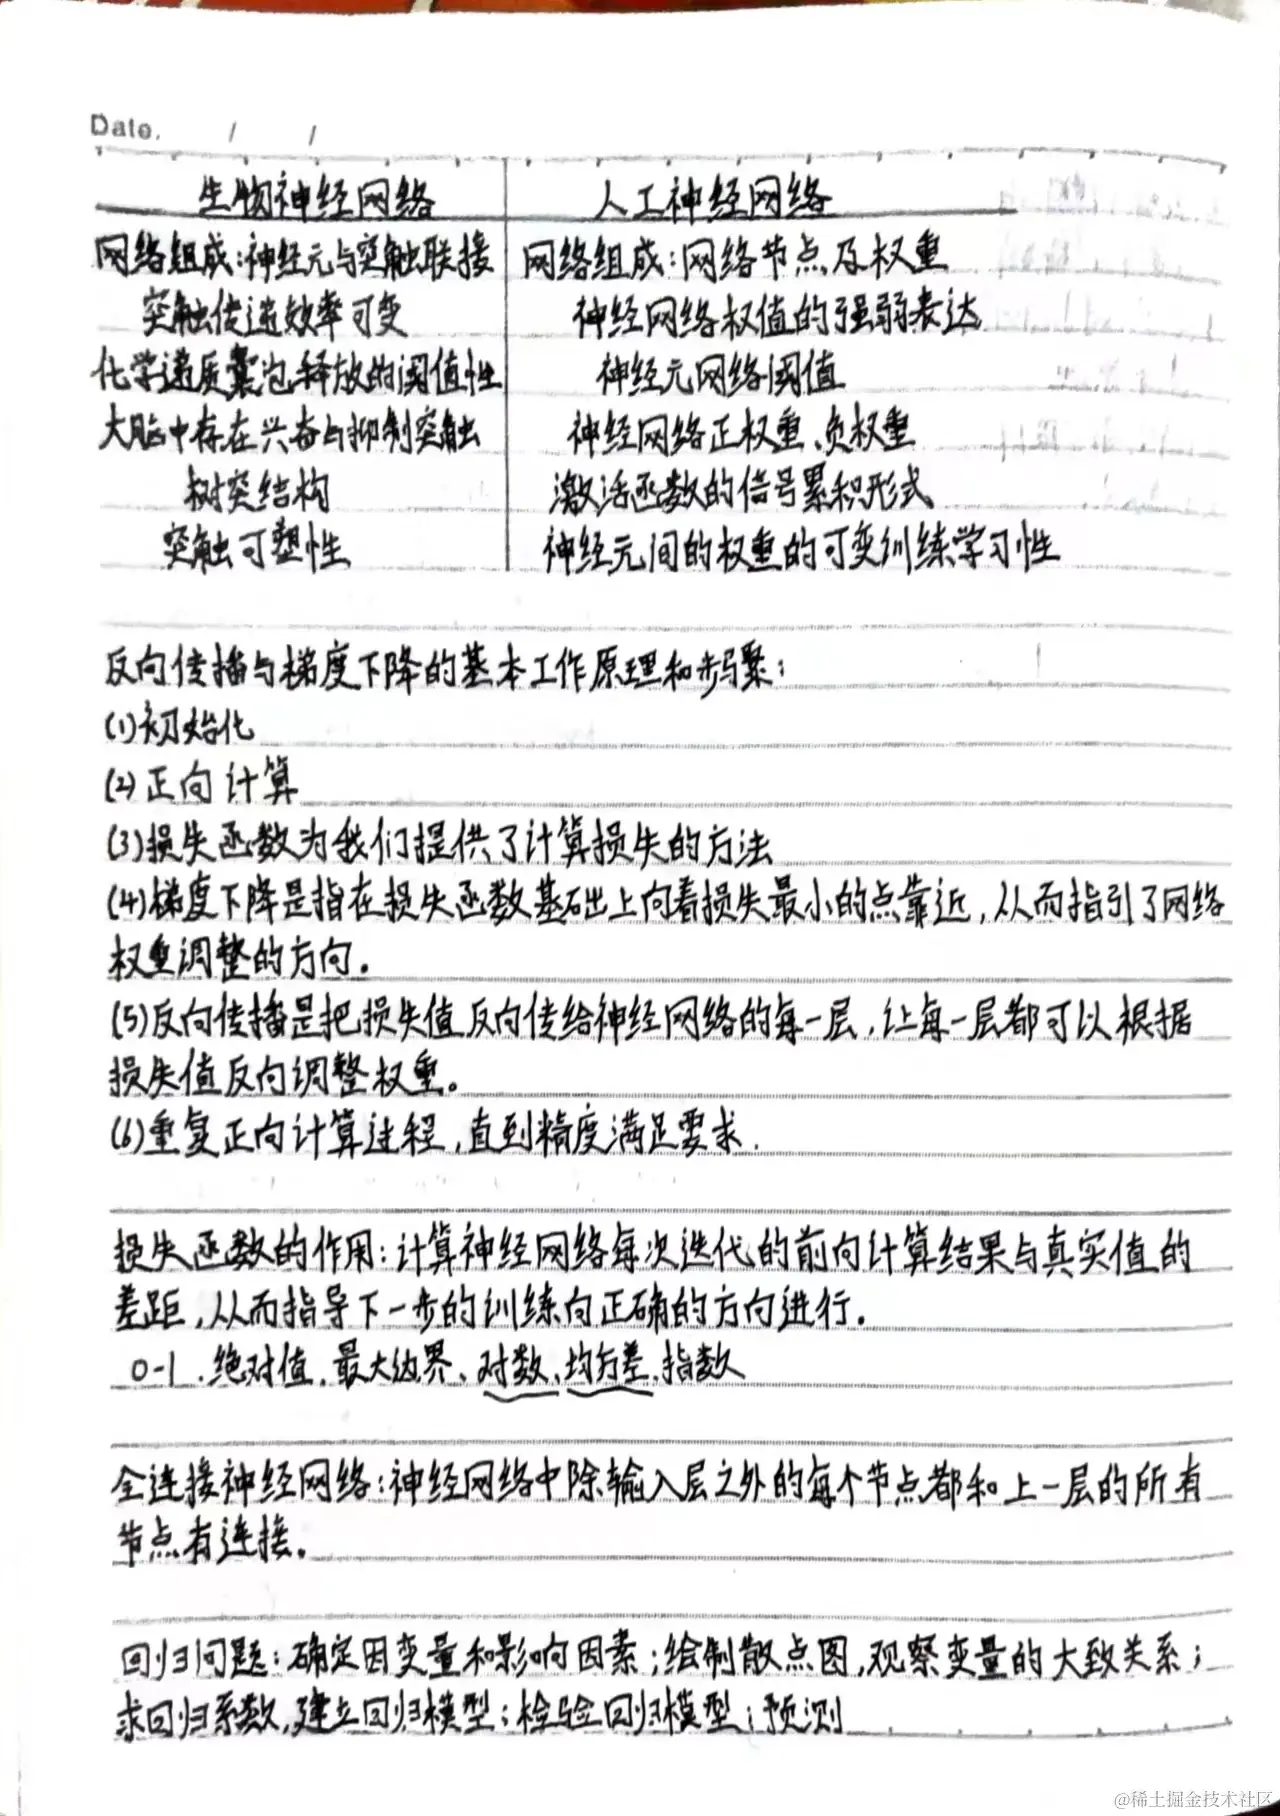 Date. / /
生物神经网络 人工神经网络
网络组成:神经元与突触联接 网络组成:网络节点及权重
突触传递效率可变 神经网络权值的强弱表达
化学递质囊泡释放的阈值性 神经元网络阈值
大脑中存在兴奋与抑制突触 神经网络正权重、负权重
树突结构 激活函数的信号累积形式
突触可塑性 神经元间的权重的可变训练学习性
反向传播与梯度下降的基本工作原理和步骤:
(1)初始化
(2)正向计算
(3)损失函数为我们提供了计算损失的方法
(4)梯度下降是指在损失函数基础上向着损失最小的点靠近,从而指引了网络
权重调整的方向。
(5)反向传播是把损失值反向传给神经网络的每一层,让每一层都可以根据
损失值反向调整权重。
(6)重复正向计算过程,直到精度满足要求.
损失函数的作用:计算神经网络每次迭代的前向计算结果与真实值的
差距,从而指导下一步的训练向正确的方向进行.
0-1、绝对值、最大边界、对数、均方差、指数
全连接神经网络:神经网络中除输入层之外的每个节点都和上一层的所有
节点有连接。
回归问题:确定因变量和影响因素;绘制散点图,观察变量的大致关系;
求回归系数,建立回归模型;检验回归模型;预测
@稀土掘金技术社区